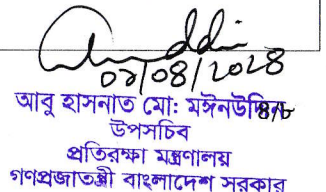 ০১/০৪/২০২৪
আবু হাসনাত মো: মঈনউদ্দিন
উপসচিব
প্রতিরক্ষা মন্ত্রণালয়
গণপ্রজাতন্ত্রী বাংলাদেশ সরকার